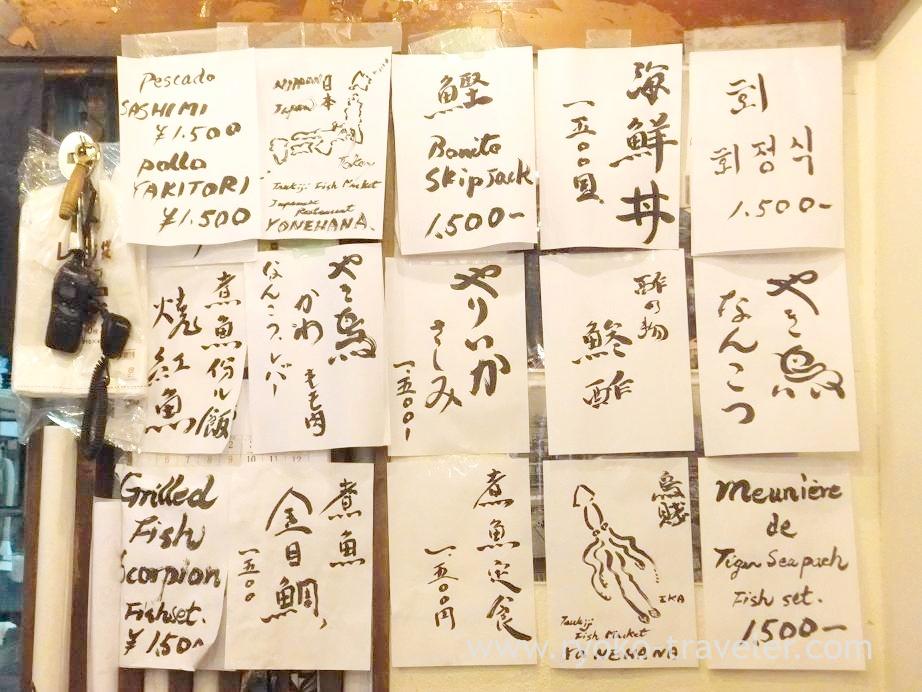 Pescado
SASHIMI
¥1.500
pollo
YAKITORI
¥1.500
NIPPON 日本
Japan
Tsukiji Fish Market
Japanese
Restaurant
YONEHANA.
鰹
Bonito
Skipjack
1,500-
海鮮丼
一五〇〇円
회
회정식
1.500-
煮魚
焼紅魚
やき鳥
かわ もも肉
なんこつ、レバー
やりいか
さしみ
一.五〇〇-
酢の物
鯵酢
やき鳥
なんこつ
Grilled
Fish
Scorpion
Fishset.
¥1.50
煮魚
金目鯛
一五〇〇
煮魚定食
一.五〇〇円
烏賊
IKA
Tsukiji
Fish Market
YONEHANA
Meunière
de
Tiger Seaperch
Fish set.
1,500-
6 7 8 9 10 11 12
www.ryoko-traveler.com